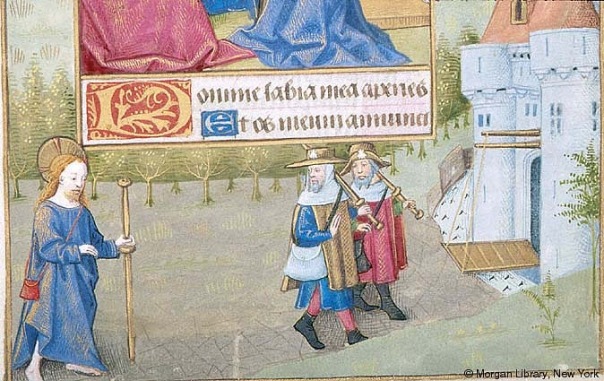 Domine labia mea aperies
Et os meum annunci
© Morgan Library, New York